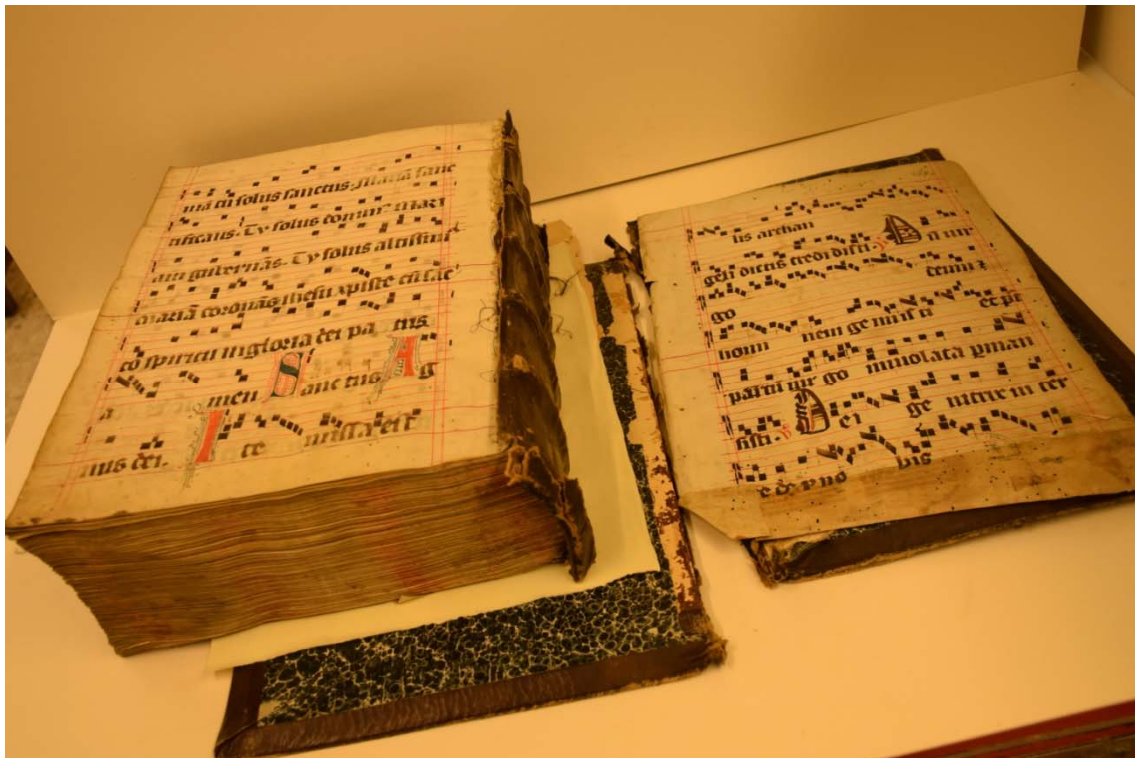 mã tu solus sanctus. Mariã sanc
tificans. Ty solus domin⁹ Mari
am gubernãs. Ty solus altissim⁹
mariã coronãs ihesu xpiste cũ sãc
to spiritu in gloria dei pa tris
a men Sanc tus A g
nus dei. I te missa est
lis archan
geli dictis credi disti
go
homi nem ge nuis ti et pt
partũ uir go inuiolata pman
sisti. ℣ Dei ge nitrix in ter